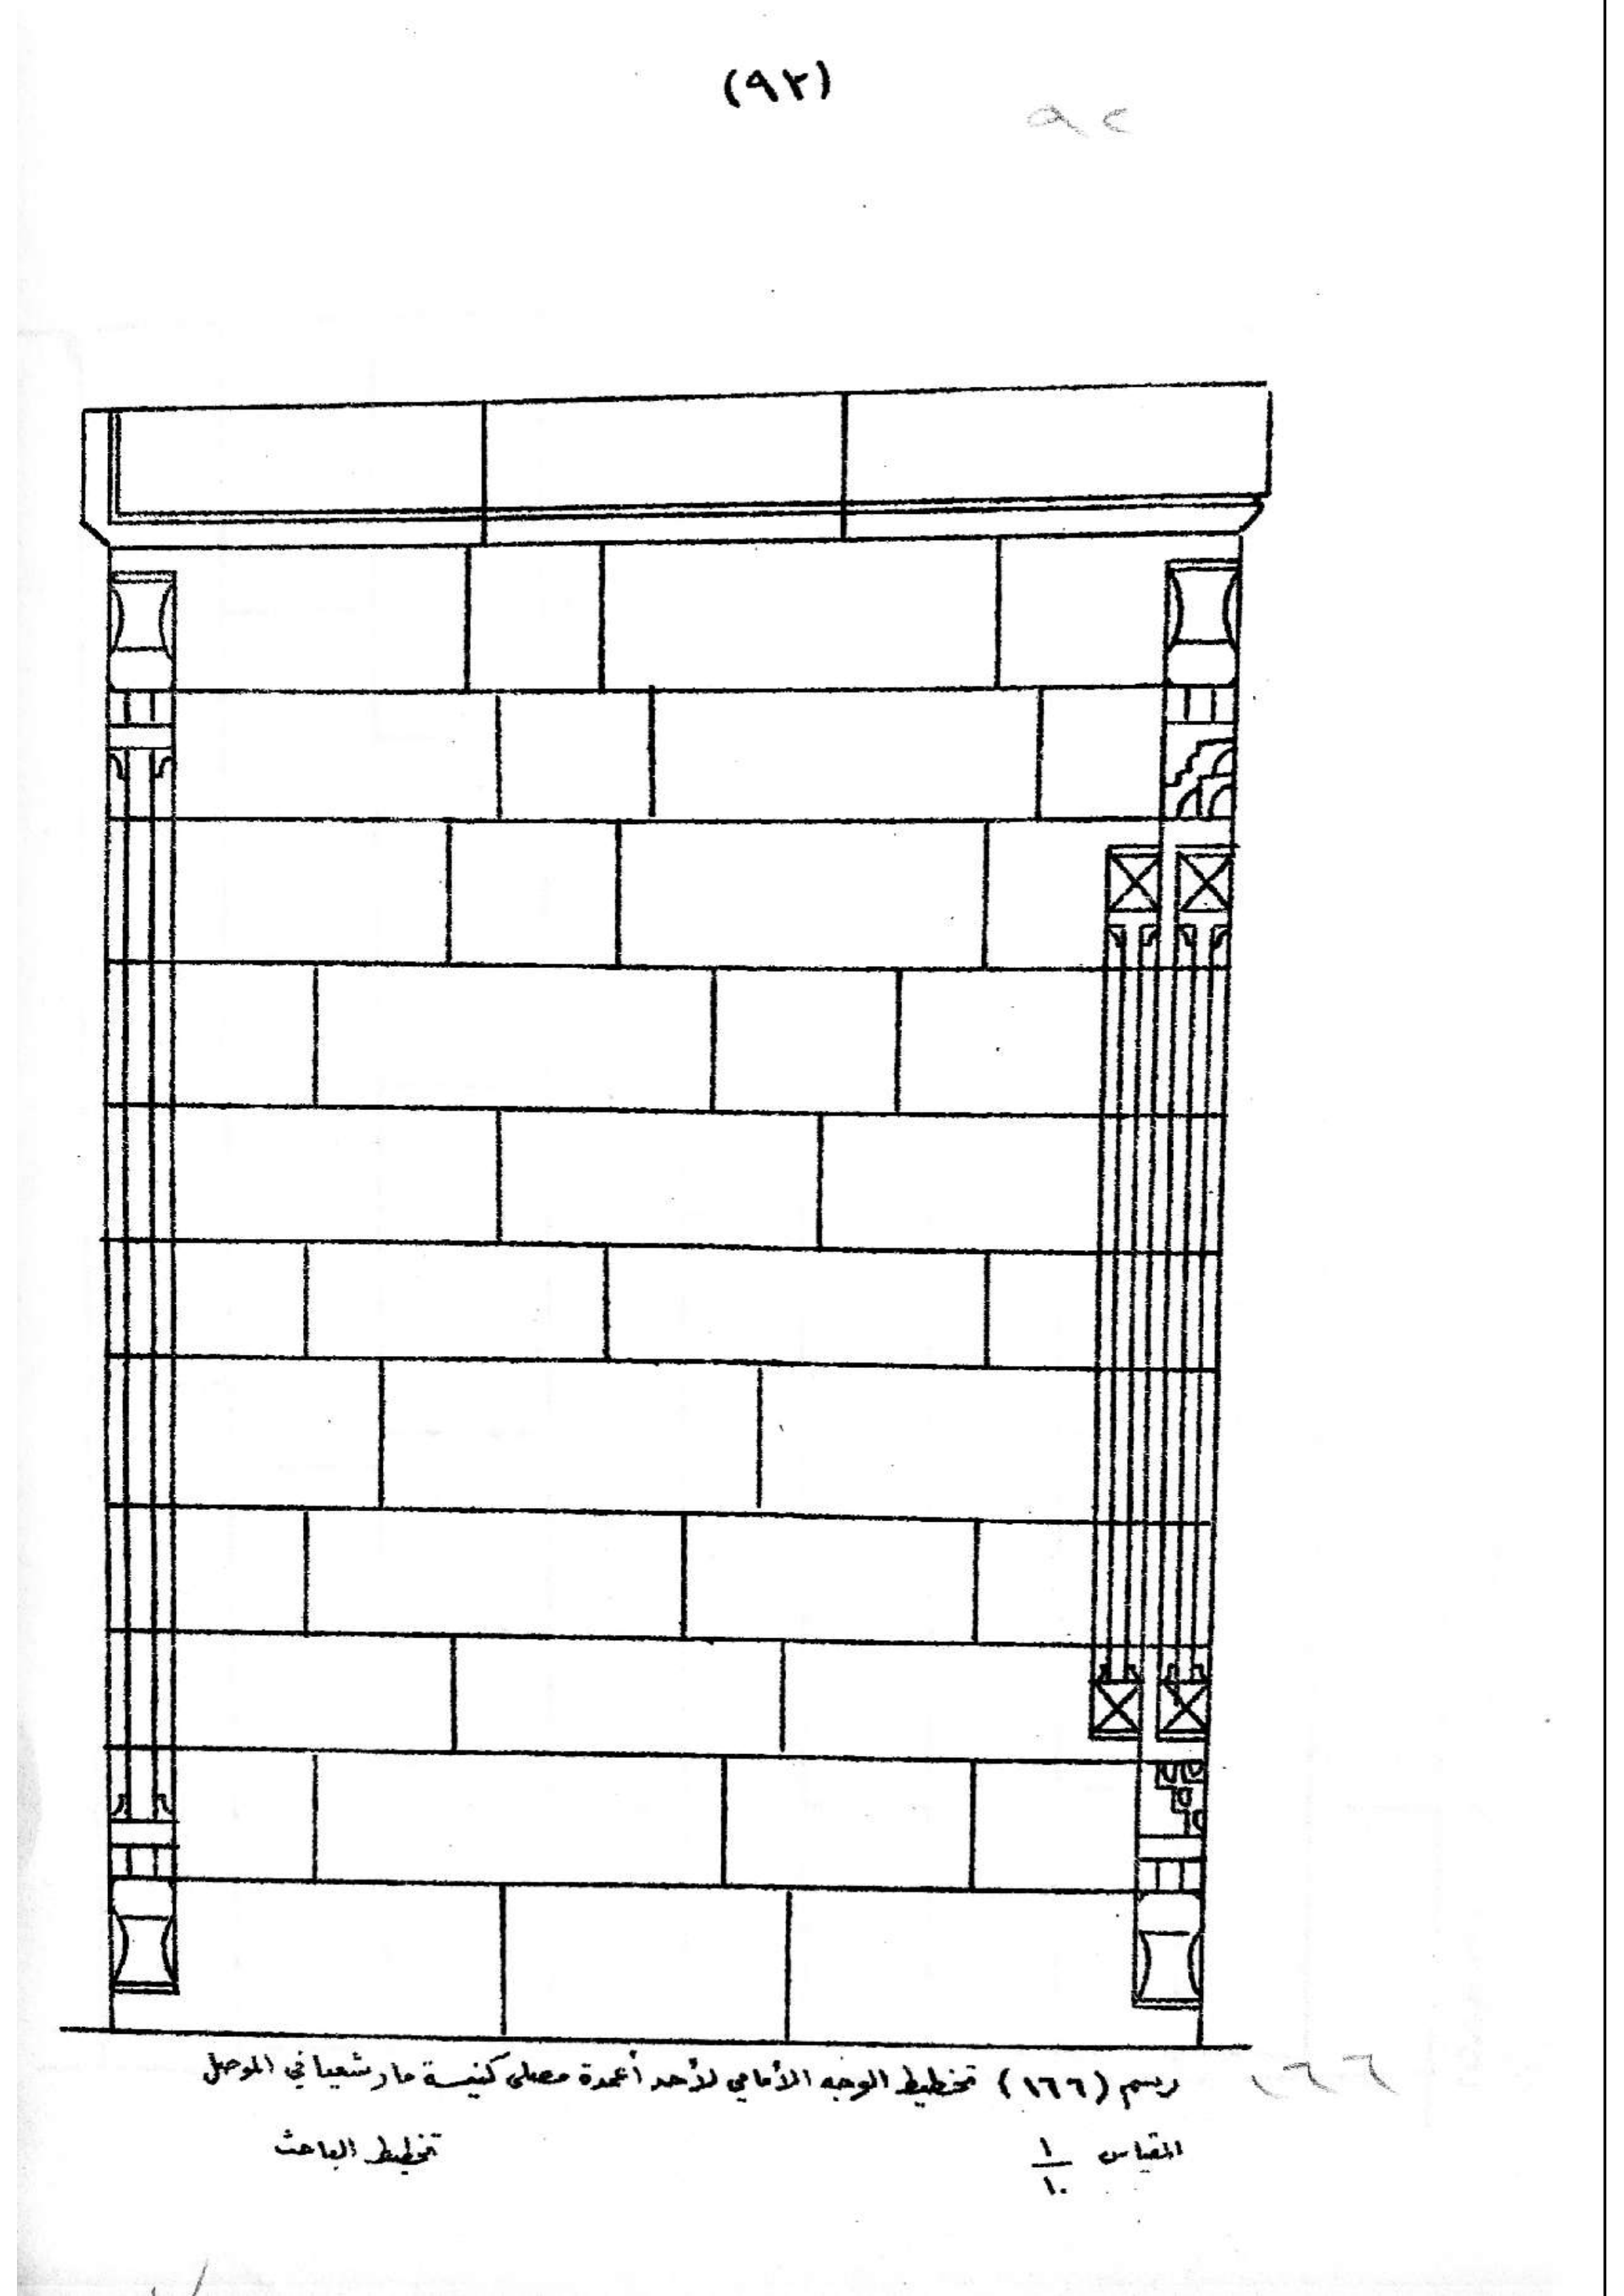 (٩٢)
٩٢
رسم (١٦٦) تخطيط الوجه الأمامي لأحد أعمدة مصلى كنيسة مار شعيا في الموصل
١٦٦
المقياس ١/١٠
تخطيط الباحث